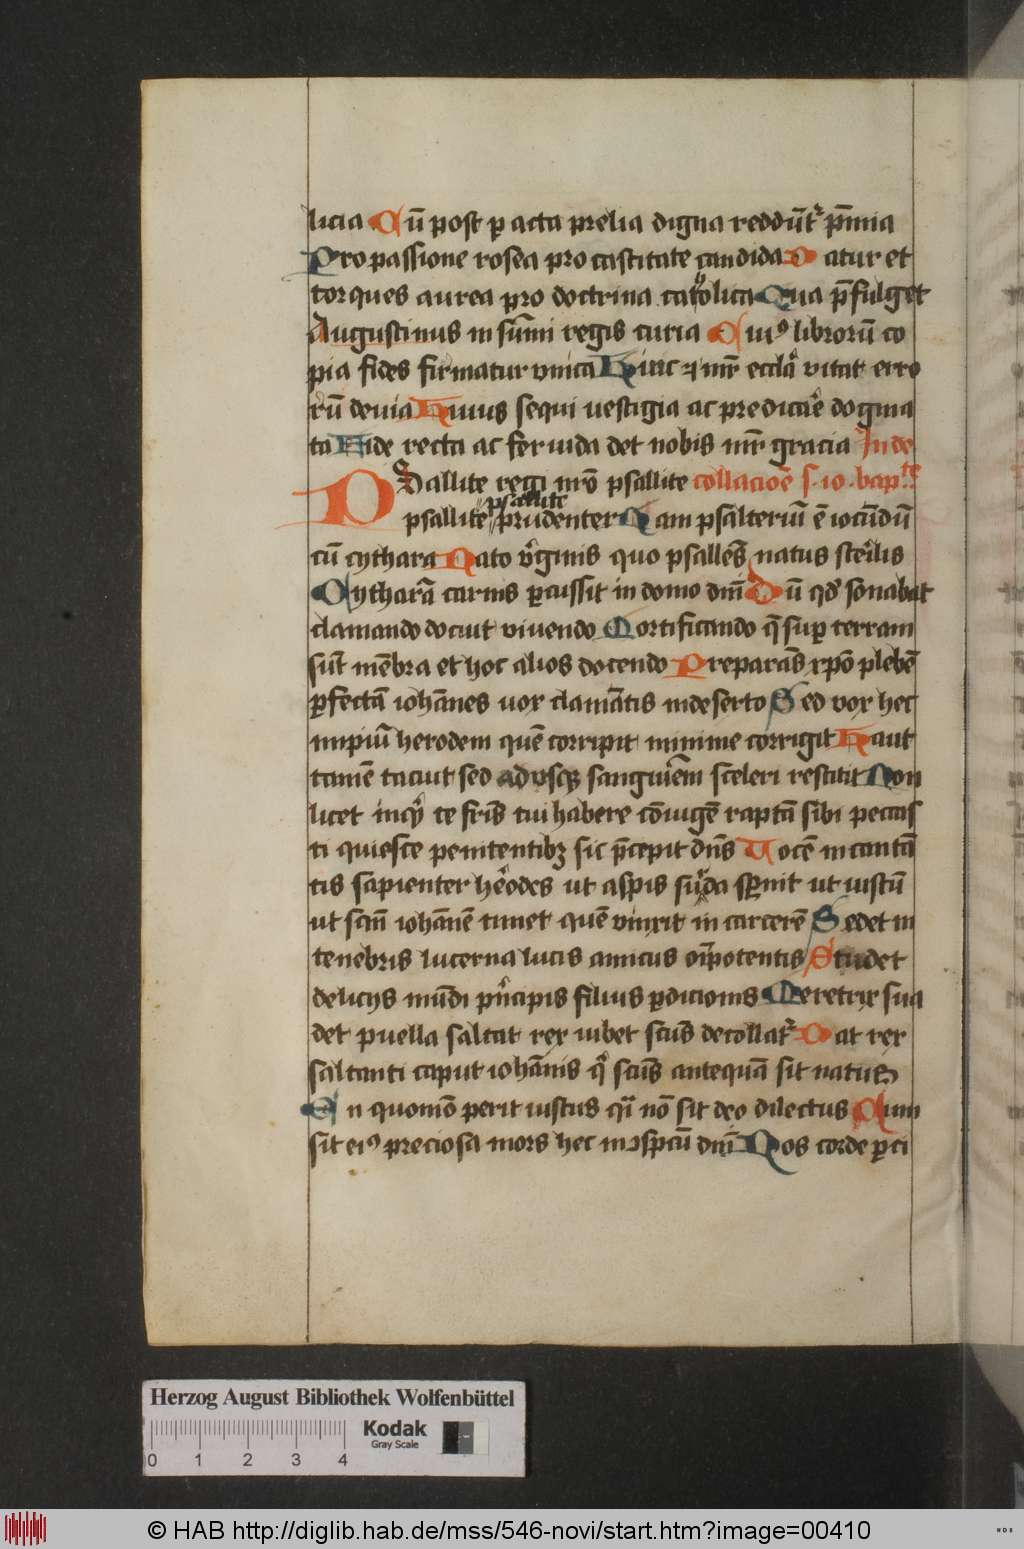 licia Cū post p acta prelia digna reddūt᷑ p̄mia
Pro passione rosea pro castitate candida Datur et
torques aurea pro doctrina catholica Qua p̄fulget
Augustinus in sūmi regis curia Cuiꝰ librorū co
pia fides firmatur vnica Hinc et mr̄ eccl̄a vitat erro
rū deuia Huius sequi uestigia ac predicāe dogma
ta Fide recta ac feruida det nobis mr̄ gracia In de
Psallite regi nr̄o psallite collacōe s. io. bapte
psallite psallite prudenter Nam psalteriū ē iocūdū
cū cythara Nato v͛ginis quo psallēs natus sterilis
Cytharā carnis ꝑcussit in domo dn̄i Dū qd̛ sonabat
clamando docuit viuendo Mortificando q̄ suꝑ terram
sūt mēbra et hoc alios docendo Preparās xp̄o plebē
ꝑfectā iohānes uox clamātis in deserto Sed vox hec
impiū herodem quē corripit minime corrigit Haut
tamē tacuit sed ad vsqꝫ sanguinem sceleri restitit Non
licet inqͥt te frīs tui habere cōiugē raptā sibi peccas
ti quiesce penitentibꝫ sic p̄cepit dn̄s Vocē incantā
tis sapienter herodes ut aspis surda sꝑnit ut iustū
ut scm̄ iohānē timet quē vinxit in carcerē Sedet in
tenebris lucerna lucis amicus oīpotentis Studet
delicijs mūdi p͛ncipis filius ꝑdicionis Meretrix sua
det puella saltat rex iubet scūs decollat᷑ Dat rex
saltanti caput iohānis qͥ scūs antequā sit natus
En quomō perit iustus qͣi nō sit deo dilectus Cum
sit eiꝰ preciosa mors hec in ꝯspcū dn̄i Nos corde ꝑci
Herzog August Bibliothek Wolfenbüttel
Kodak
Gray Scale
0 1 2 3 4
© HAB http://diglib.hab.de/mss/546-novi/start.htm?image=00410